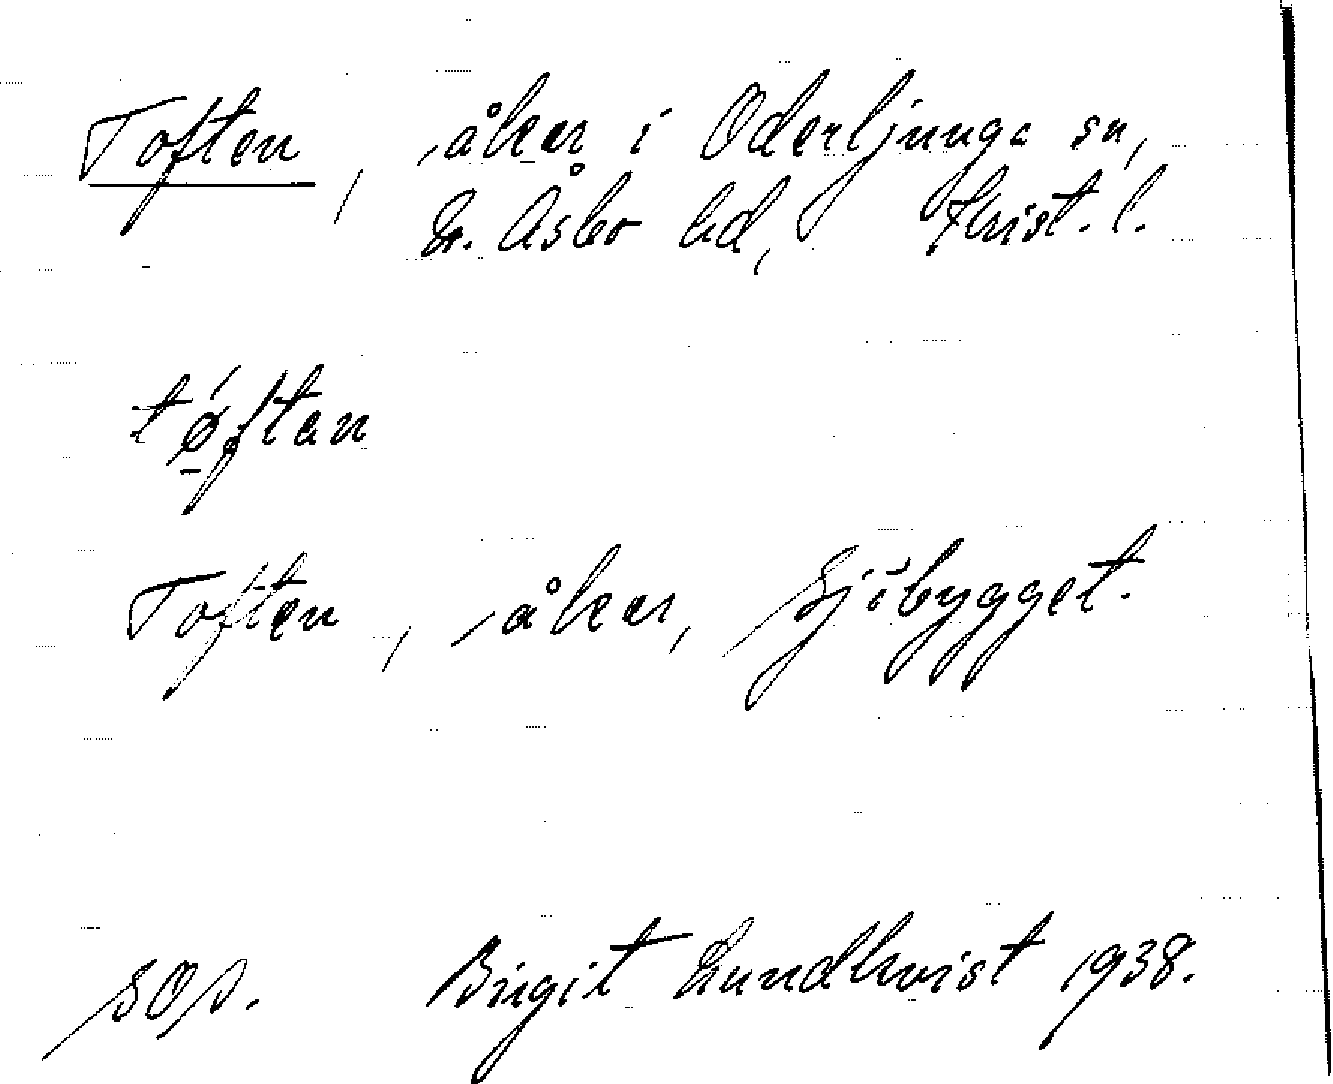 Toften, åker i Oderljunga sn,
N. Åsbo hd, Krist. l.
tǿftan
Toften, åker, Sjöbygget.
SOS. Birgit Lundkvist 1938.